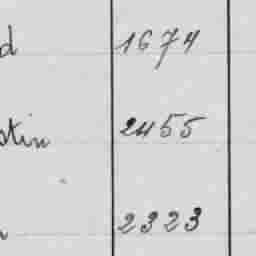 d 1674
stin 2455
2323